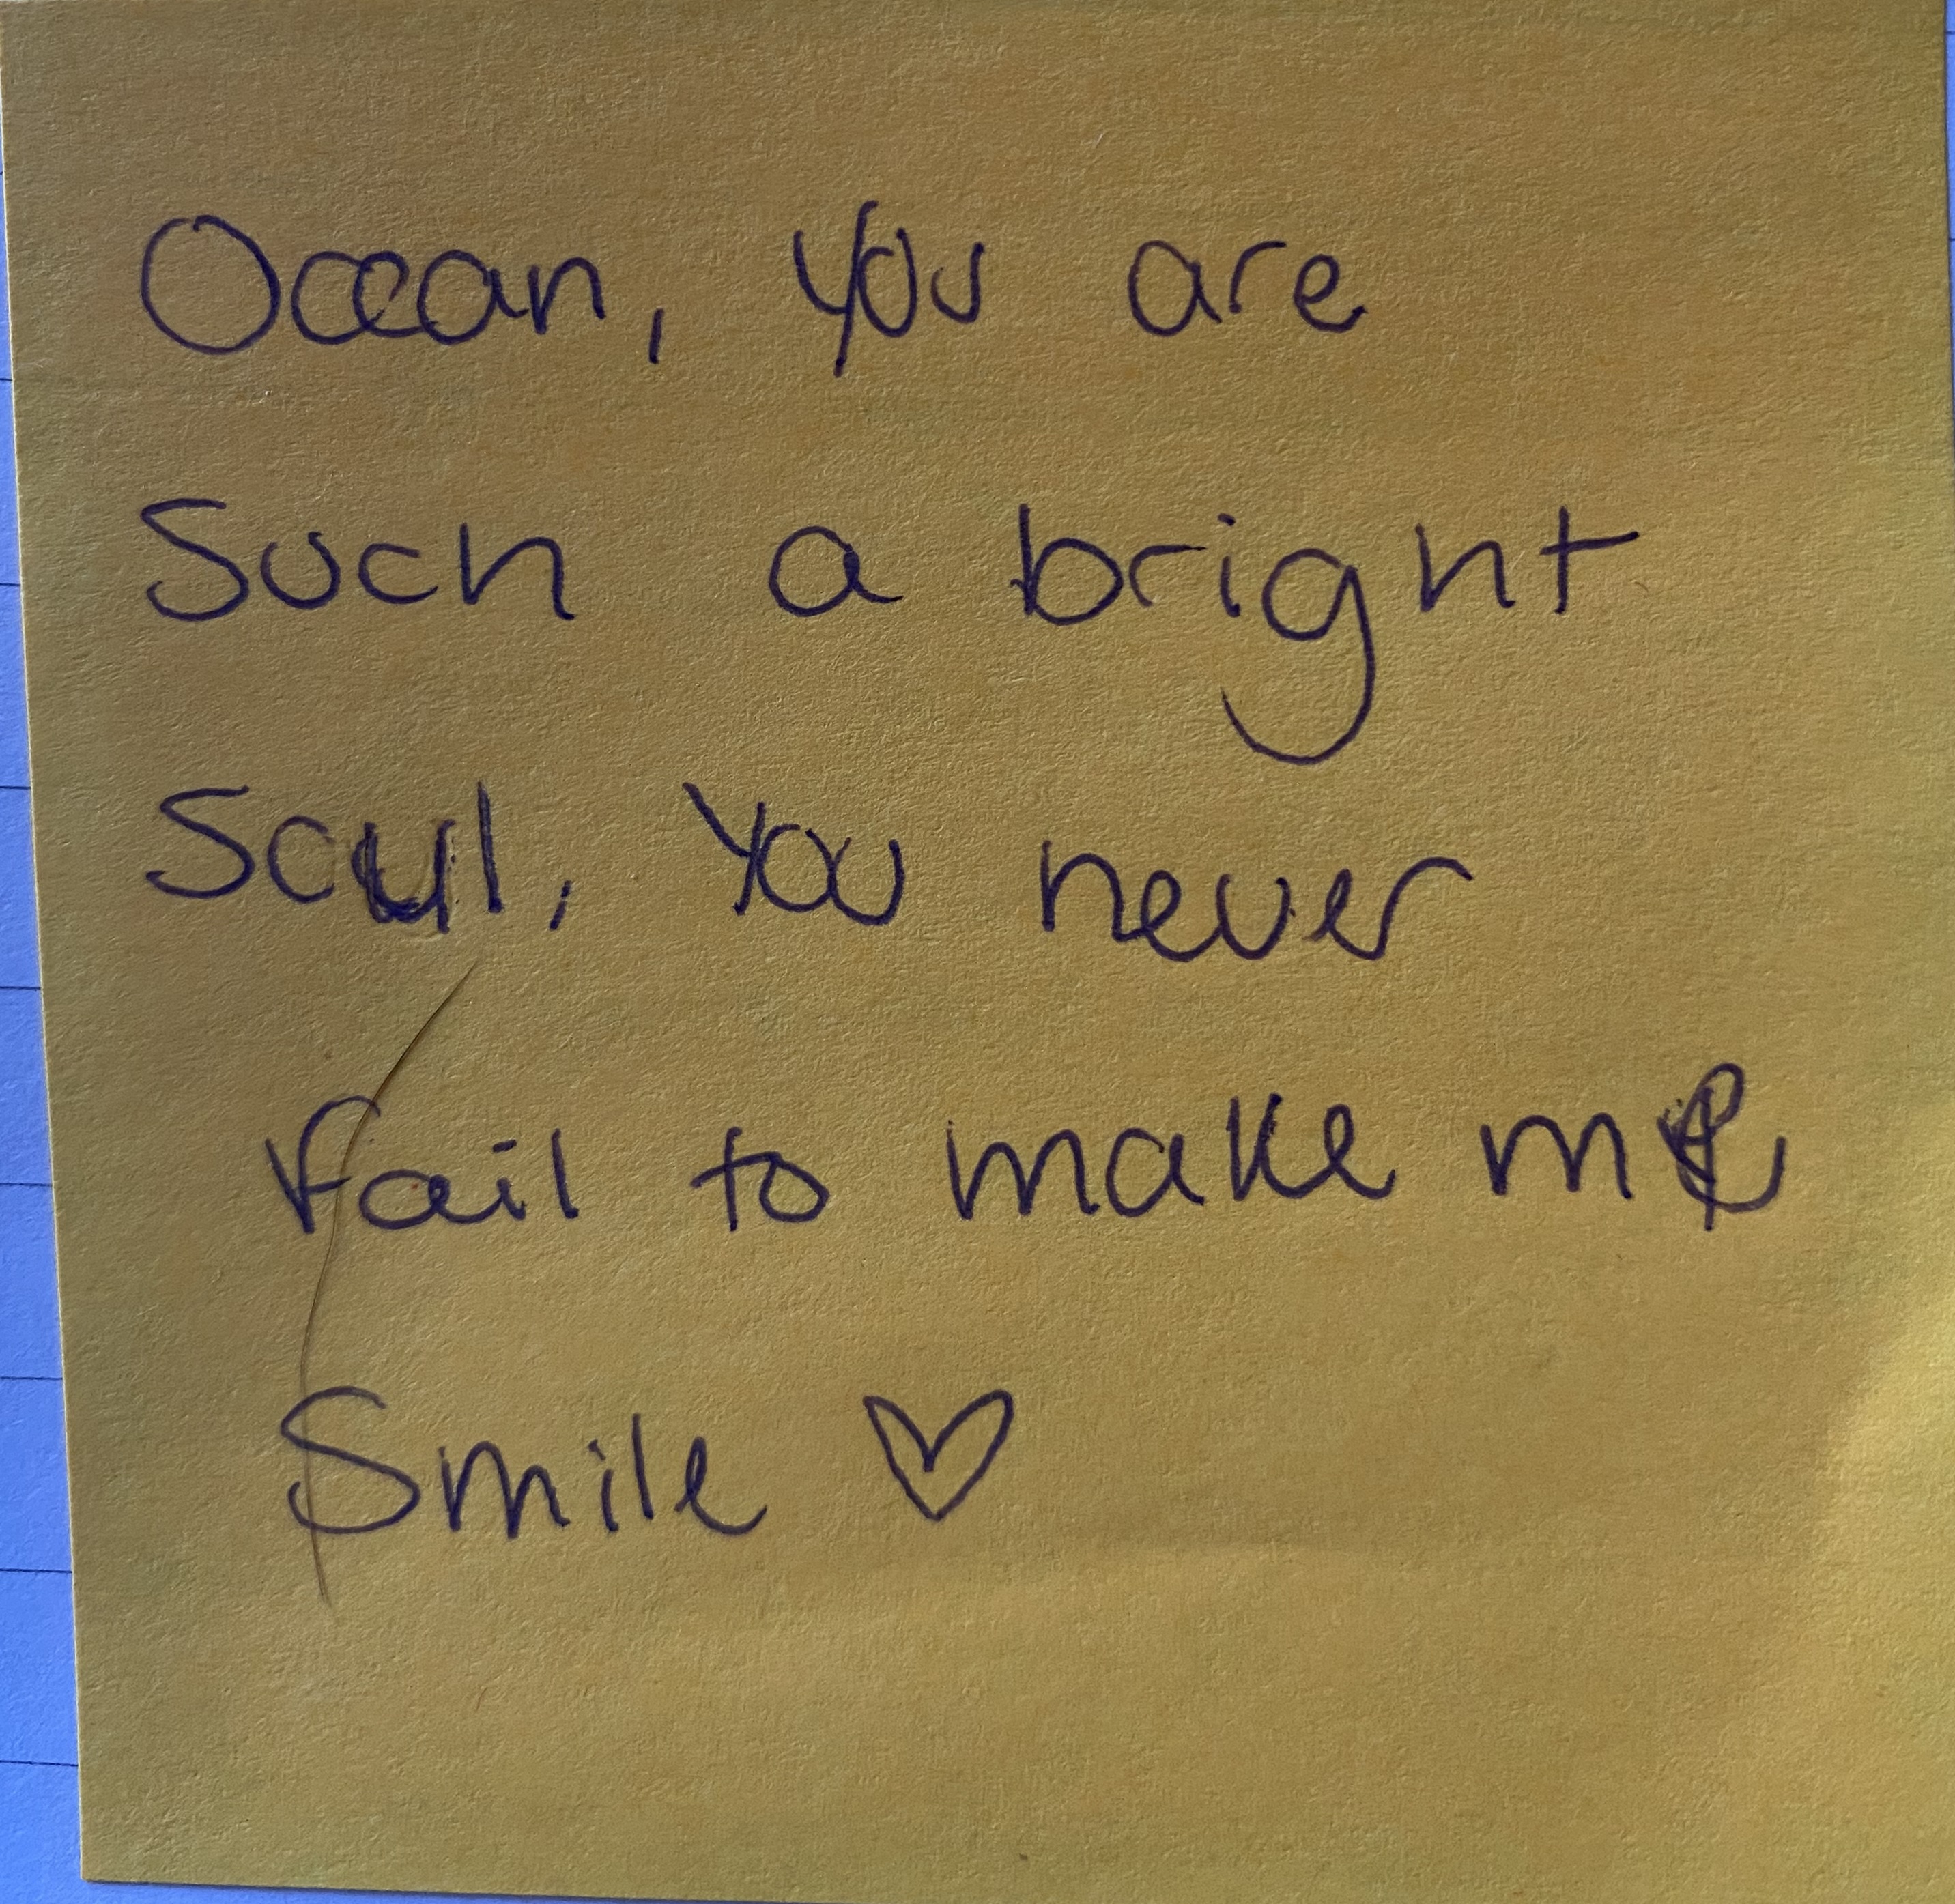 Ocean, you are
Such a bright
Soul, You never
fail to make me
Smile ♡